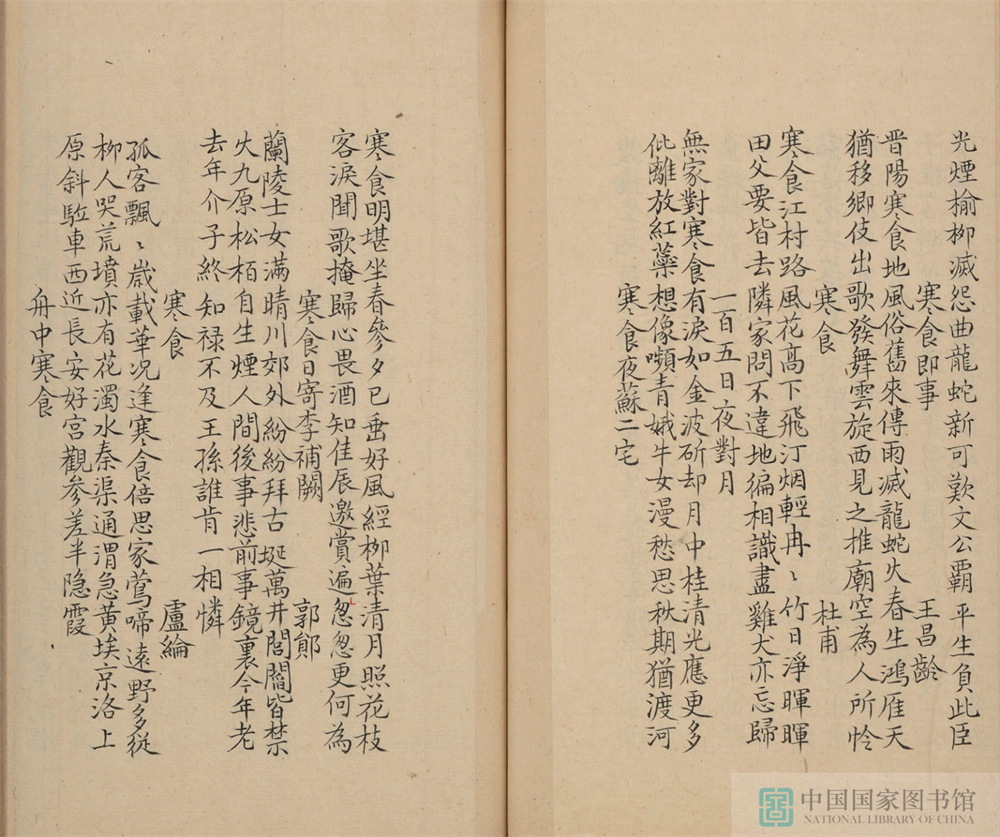 光煙榆柳滅怨曲龍蛇新可歎文公霸平生負此臣
寒食即事 王昌齡
晋陽寒食地風俗舊來傳雨滅龍蛇火春生鴻雁天
猶移鄉伎出歌發舞雲旋西見之推廟空為人所怜
寒食 杜甫
寒食江村路風花高下飛汀烟輕冉〻竹日淨暉暉
田父要皆去隣家問不違地徧相識盡雞犬亦忘歸
一百五日夜對月
無家對寒食有淚如金波斫却月中桂清光應更多
仳離放紅蘂想像嚬青娥牛女漫愁思秋期猶渡河
寒食夜蘇二宅
寒食明堪坐春參夕已垂好風經柳葉清月照花枝
客淚聞歌掩歸心畏酒知佳辰邀賞遍忽忽更何為
寒食日寄李補闕 郭鄖
蘭陵士女滿晴川郊外紛紛拜古埏萬井閭閻皆禁
火九原松栢自生煙人間後事悲前事鏡裏今年老
去年介子終知禄不及王孫誰肯一相憐
寒食 盧綸
孤客飄〻歲載華况逢寒食倍思家鶯啼遠野多從
柳人哭荒墳亦有花濁水秦渠通渭急黄埃京洛上
原斜駐車西近長安好宮觀參差半隐霞
舟中寒食
中国国家图书馆
NATIONAL LIBRARY OF CHINA